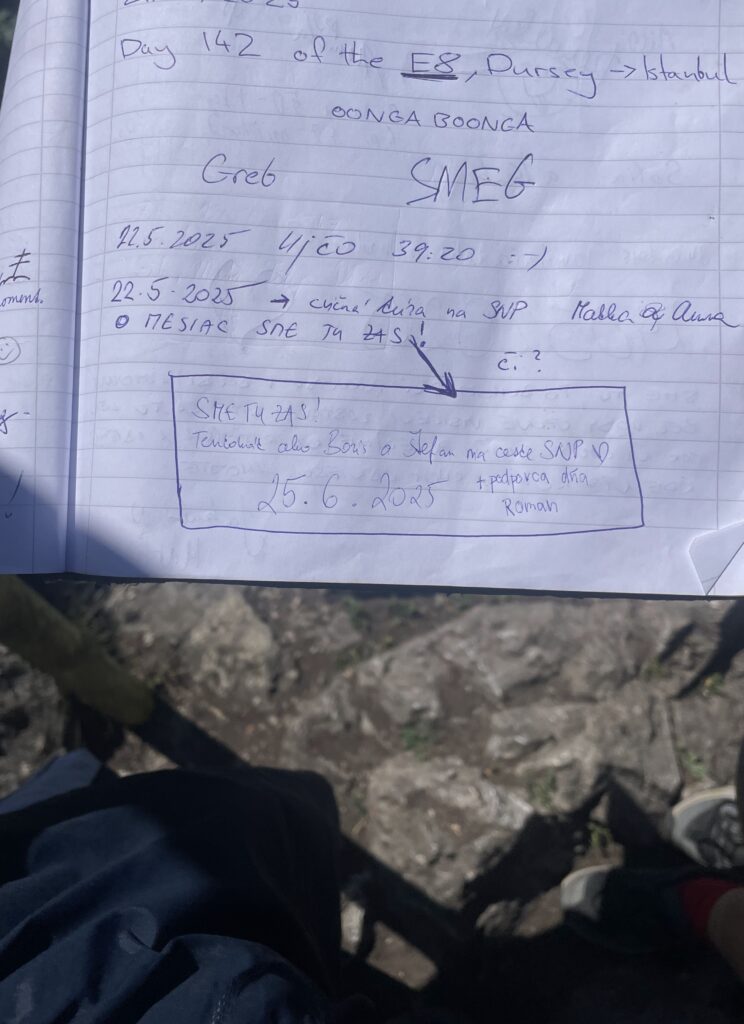 2025
Day 142 of the E8, Dursey → Istanbul
OONGA BOONGA
Greb SMEG
22.5.2025 Ujčo 39:20 :-)
22.5.2025 → na SNP Maťka & Anna
O MESIAC SME TU ZAS!
č. ?
SME TU ZAS!
Tentokrát ako Boris a Štefan na ceste SNP ♡
+ podporca dňa
25.6.2025 Roman
oment.